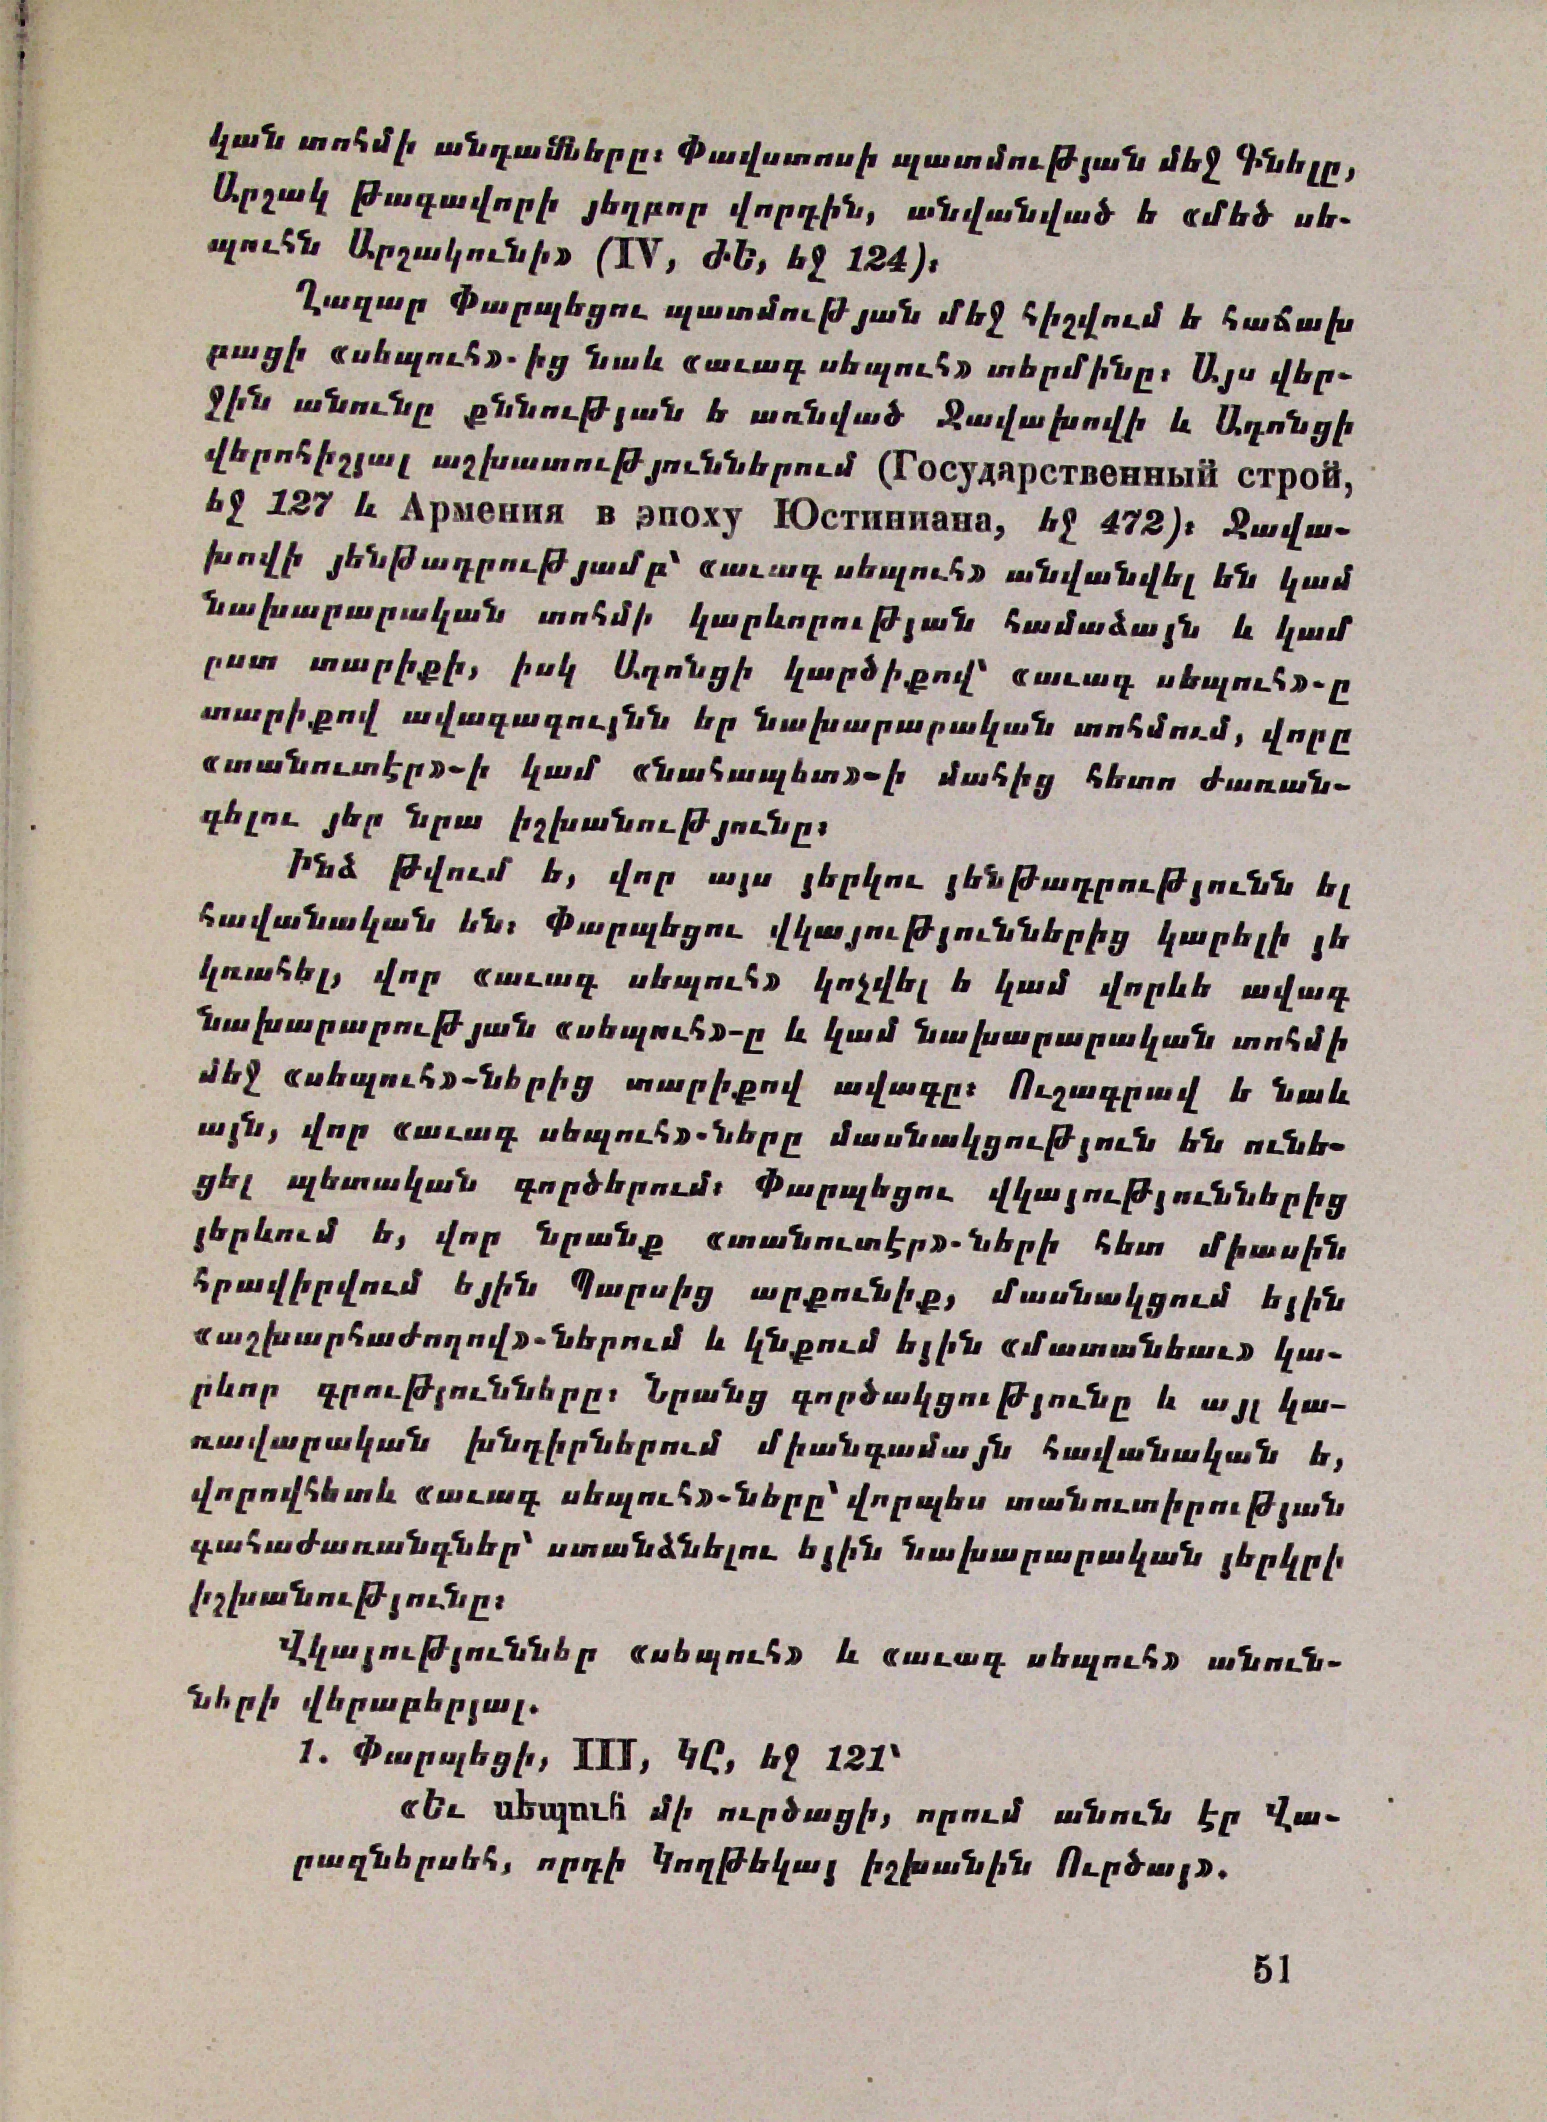 կան տոհմի անդամները։ Փավստոսի պատմության մեջ Գնելը,
Արշակ թագավորի յեղբոր վորդին, անվանված ե «մեծ սե-
պուհն Արշակունի» (IV, ԺԵ, եջ 124)։
Ղազար Փարպեցու պատմության մեջ հիշվում ե հաճախ
բացի «սեպուհ»-ից նաև «աւագ սեպուհ» տերմինը։ Այս վեր-
ջին անունը քննության ե առնված Ջավախովի և Ադոնցի
վերոհիշյալ աշխատություններում (Государственный строй,
եջ 127 և Армения в эпоху Юстиниана, եջ 472)։ Ջավա-
խովի յենթադրությամբ՝ «աւագ սեպուհ» անվանվել են կամ
նախարարական տոհմի կարևորության համաձայն և կամ
ըստ տարիքի, իսկ Ադոնցի կարծիքով՝ «աւագ սեպուհ»-ը
տարիքով ավագագույնն եր նախարարական տոհմում, վորը
«տանուտէր»-ի կամ «նահապետ»-ի մահից հետո ժառան-
գելու յեր նրա իշխանությունը։
Ինձ թվում ե, վոր այս յերկու յենթադրությունն ել
հավանական են։ Փարպեցու վկայություններից կարելի յե
կռահել, վոր «աւագ սեպուհ» կոչվել ե կամ վորևե ավագ
նախարարության «սեպուհ»-ը և կամ նախարարական տոհմի
մեջ «սեպուհ»-ներից տարիքով ավագը։ Ուշագրավ ե նաև
այն, վոր «աւագ սեպուհ»-ները մասնակցություն են ունե-
ցել պետական գործերում։ Փարպեցու վկայություններից
յերևում ե, վոր նրանք «տանուտէր»-ների հետ միասին
հրավիրվում եյին Պարսից արքունիք, մասնակցում եյին
«աշխարհաժողով»-ներում և կնքում եյին «մատանեաւ» կա-
րևոր գրությունները։ Նրանց գործակցությունը և այլ կա-
ռավարական խնդիրներում միանգամայն հավանական ե,
վորովհետև «աւագ սեպուհ»-ները՝ վորպես տանուտիրության
գահաժառանգներ՝ ստանձնելու եյին նախարարական յերկրի
իշխանությունը։
Վկայությունները «սեպուհ» և «աւագ սեպուհ» անուն-
ների վերաբերյալ.
1. Փարպեցի, III, ԿԸ, եջ 121՝
«Եւ սեպուհ մի ուրծացի, որում անուն էր Վա-
րազներսեհ, որդի Կողթեկայ իշխանին Ուրծայ».
51